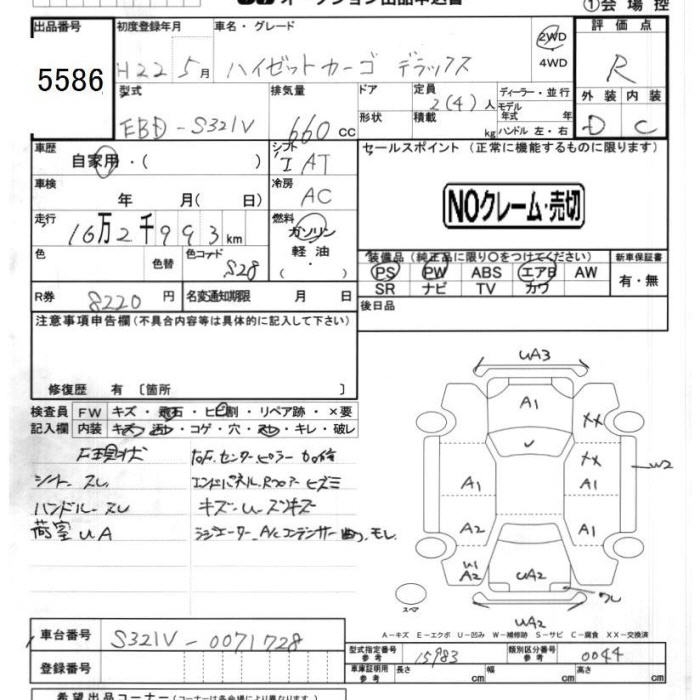 オークション出品申込書
①会場控
出品番号
5586
初度登録年月
H22 5月
車名・グレード
ハイゼットカーゴ デラックス
2WD
4WD
評価点
R
型式
EBD-S321V
排気量
660 cc
ドア
形状
定員
2(4)人
積載
kg
ディーラー・並行
モデル
年式 年
ハンドル 左・右
外装 内装
D C
車歴
自家用・( )
シフト
I AT
セールスポイント(正常に機能するものに限ります)
NOクレーム・売切
車検
年 月( 日)
冷房
AC
走行
16万2千993km
燃料
ガソリン
軽油
( ・ )
色
色替
色コード
S28
装備品(純正品に限り○をつけてください)
PS PW ABS エアB AW
SR ナビ TV カワ
新車保証書
有・無
R券
8220円
名変通知期限 月 日
後日品
注意事項申告欄(不具合内容等は具体的に記入して下さい)
修復歴 有[箇所 ]
検査員
記入欄
FW キズ・飛石・ヒビ割・リペア跡・×要
内装 キズ・汚れ・コゲ・穴・スレ・キレ・破レ
F現状
シート スレ
ハンドル-スレ
荷室UA
センターピラー
エンドパネル、Rフロアー ヒズミ
キズ・U
ラジエーター、A/Cコンデンサー曲り、モレ
UA3
A1
XX
XX
W2
A1
A1
A2
A1
W1
A2
UA2
ワレ
UA2
スペア
A-キズ E-エクボ U-凹み W-補修跡 S-サビ C-腐食 XX-交換済
車台番号
S321V-0071728
登録番号
型式指定番号
参考
15983
類別区分番号
参考
0044
車庫証明用
参考
長さ cm 幅 cm 高さ cm
希望出品コーナー